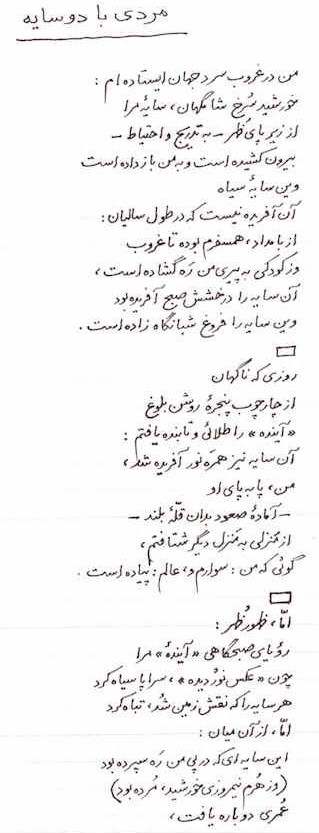 مردی با دو سایه
من در غروب سرد جهان ایستاده ام :
خورشید سُرخ شامگهان، سایۀ مرا
از زیر پای ظهر – به تدریج و احتیاط –
بیرون کشیده است و به من باز داده است
وین سایۀ سیاه
آن آفریده نیست که در طول سالیان :
از بامداد، همسفرم بوده تا غروب
وز کودکی به پیری من رَه گشاده است،
آن سایه را درخشش صبح آفریده بود
وین سایه را فروغ شبانگاه زاده است .
روزی که ناگهان
از چارچوب پنجرۀ روشن بلوغ
«آینده» را طلائی و تابنده یافتم :
آن سایه نیز همرَه نور آفریده شد،
من، پا به پای او
– آمادۀ صعود بدان قلّۀ بلند –
از منزلی به منزل دیگر شتافتم،
گوئی که من : سوارم و، عالم : پیاده است .
امّا، ظهورِ ظهر :
رؤیای صبحگاهی «آیندۀ» مرا
چون «عکس نور دیده»، سراپا سیاه کرد
هر سایه را که نقش زمین شُد، تباه کرد
امّا، از آن میان :
این سایه ای که در پی من رَه سپرده بود
(وز هُرم نیمروزی خورشید، مُرده بود)
عُمری دوباره یافت،